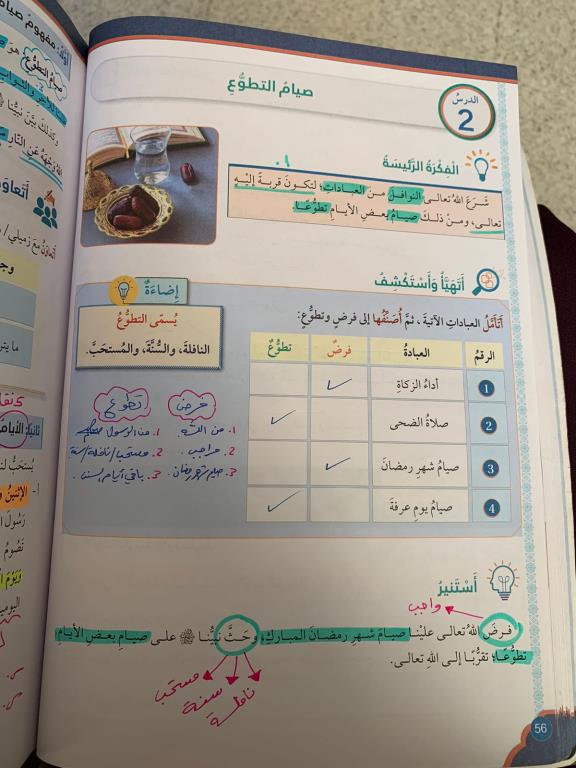 صيامُ التطوُّعِ
الدرسُ
2
الْفِكْرَةُ الرَّئيسَةُ
شَرَعَ اللهُ تعالى النوافلَ منَ العباداتِ؛ لتكونَ قربةً إليْهِ
تعالى، ومنْ ذلكَ صيامُ بعضِ الأيامِ تطوُّعًا.
أَتَهَيَّأُ وَأَسْتَكْشِفُ
أَتَأَمَّلُ العباداتِ الآتيةَ، ثمَّ أُصَنِّفُها إلى فرضٍ وتطوُّعٍ:
الرقمُ العبادةُ فرضٌ تطوُّعٌ
1 أداءُ الزكاةِ ✓
2 صلاةُ الضحى ✓
3 صيامُ شهرِ رمضانَ ✓
4 صيامُ يومِ عرفةَ ✓
إضاءَةٌ
يُسمّى التطوُّعُ
النافلةَ، والسُّنَّةَ، والمُستحَبَّ.
فرض تطوع
1. من الله 1. من الرسول
2. واجب 2. مستحب/نافلة/سنة
3. صيام شهر رمضان 3. باقي أيام السنة
أَسْتَنيرُ
واجب
فرضَ اللهُ تعالى علَيْنا صيامَ شهرِ رمضانَ المباركِ، وحَثَّ نبيُّنا ﷺ على صيامِ بعضِ الأيامِ
تطوُّعًا؛ تقرُّبًا إلى اللهِ تعالى.
مستحب
سنة
نافلة
56
أَوَّلًا: مفهومُ صيامِ
صيامُ التطوُّعِ هو
وكذلكَ بيَّنَ نبيُّنا
اللهُ وَجْهَهُ عَنِ النّارِ
أَتَعاوَنُ
أتعاونُ معَ زميلي/
ثانيًا: الأيامُ
يُسْتَحَبُّ
الإثنينُ
رَسُولَ
تَصُومُ
وَيَوْمَ